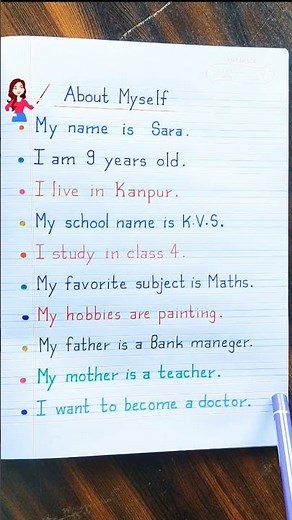 About Myself
My name is Sara.
I am 9 years old.
I live in Kanpur.
My school name is K.V.S.
I study in class 4.
My favorite subject is Maths.
My hobbies are painting.
My father is a Bank maneger.
My mother is a teacher.
I want to become a doctor.